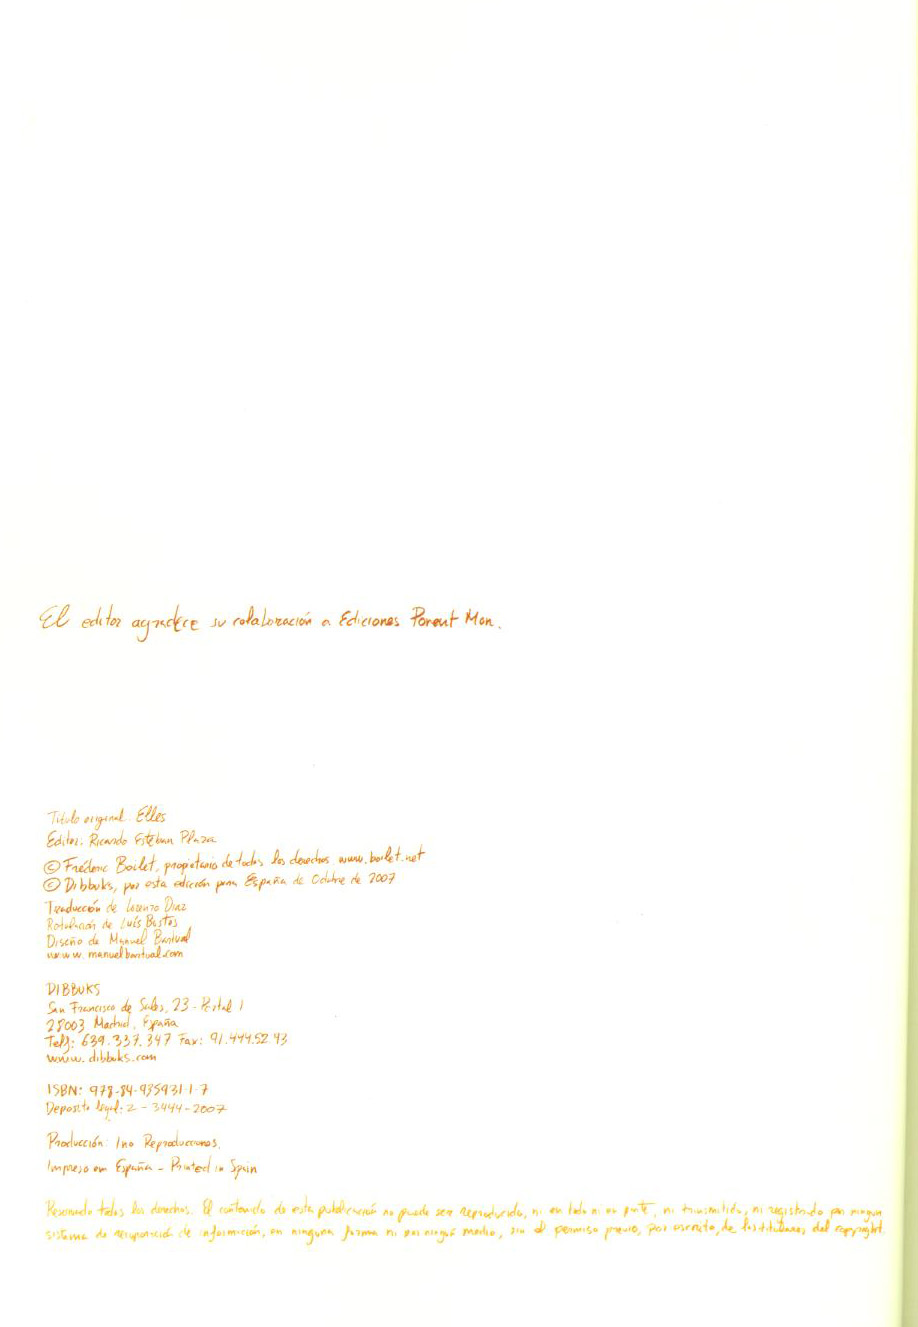 El editor agradece su colaboración a Ediciones Ponent Mon.
Título original: Elles
Editor: Ricardo Esteban Plaza
© Fréderic Boilet, propietario de todos los derechos www.boilet.net
© Dibbuks, por esta edición para España de Octubre de 2007
Traducción de Lorenzo Díaz
Rotulación de Luís Bustos
Diseño de Manuel Bartual
www.manuelbartual.com
DIBBUKS
San Francisco de Sales, 23 - Portal 1
28003 Madrid. España
Telf: 639.337.347 Fax: 91.444.52 43
www.dibbuks.com
ISBN: 978-84-935931-1-7
Deposito legal: Z - 3444-2007
Producción: Ino Reproducciones.
Impreso en España - Printed in Spain
Reservado todos los derechos. El contenido de esta publicación no puede ser reproducido, ni en todo ni en parte, ni transmitido, ni registrado por ningun
sistema de recuperación de información, en ninguna forma ni por ningún medio, sin el permiso previo, por escrito, de los titulares del copyright.